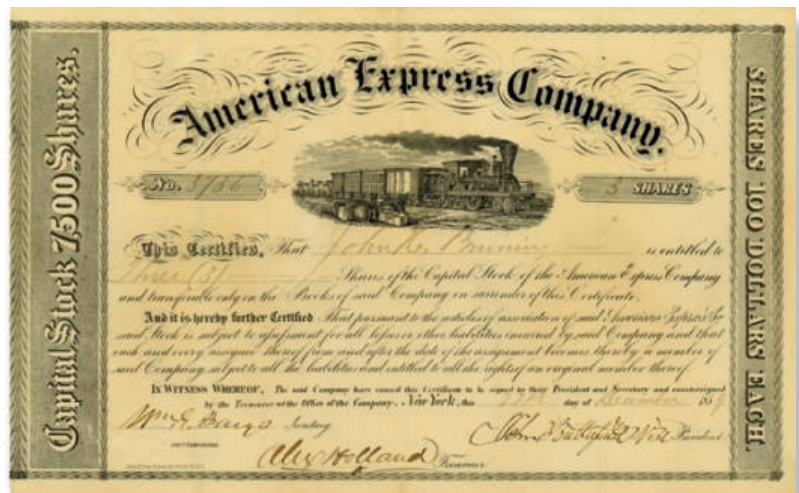 American Express Company.
Capital Stock 7500 Shares.
SHARES 100 DOLLARS EACH.
No. 3736
3 SHARES
This Certifies, That John is entitled to
Three (3) Shares of the Capital Stock of the American Express Company
and transferable only on the Books of said Company on surrender of this Certificate.
And it is hereby further Certified That pursuant to the articles of association of said American Express Co
said Stock is subject to assessment for all losses or other liabilities incurred by said Company and that
each and every assignee thereof from and after the date of the assignment becomes thereby a member of
said Company subject to all the liabilities and entitled to all the rights of an original member thereof.
IN WITNESS WHEREOF, The said Company have caused this Certificate to be signed by their President and Secretary and countersigned
by the Treasurer at the Office of the Company, New York, this day of December 18
Wm G. Fargo Secretary
President
COUNTERSIGNED
Alex Holland Treasurer